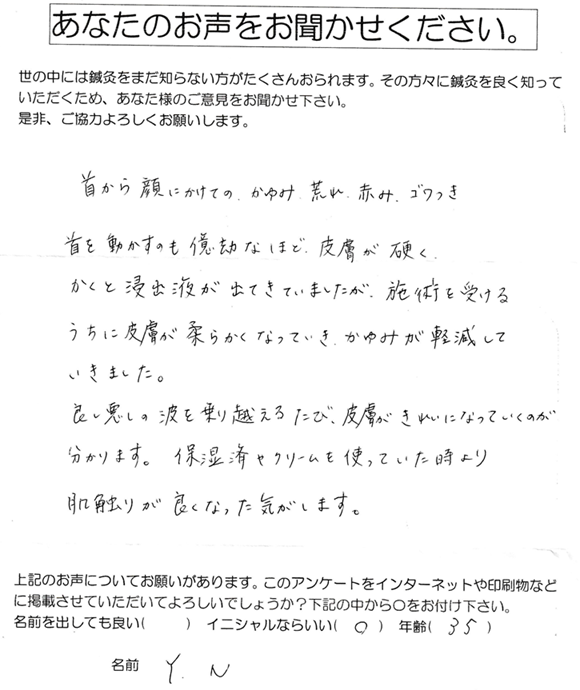 あなたのお声をお聞かせください。
世の中には鍼灸をまだ知らない方がたくさんおられます。その方々に鍼灸を良く知って
いただくため、あなた様のご意見をお聞かせ下さい。
是非、ご協力よろしくお願いします。
首から顔にかけての、かゆみ、荒れ、赤み、ゴワつき
首を動かすのも億劫なほど、皮膚が硬く、
かくと浸出液が出てきていましたが、施術を受ける
うちに皮膚が柔らかくなっていき、かゆみが軽減して
いきました。
良し悪しの波を乗り越えるたび、皮膚がきれいになっていくのが
分かります。保湿済やクリームを使っていた時より
肌触りが良くなった気がします。
上記のお声についてお願いがあります。このアンケートをインターネットや印刷物など
に掲載させていただいてよろしいでしょうか？下記の中から〇をお付け下さい。
名前を出しても良い(　　) イニシャルならいい( 〇 ) 年齢( 35 )
名前 Y. N